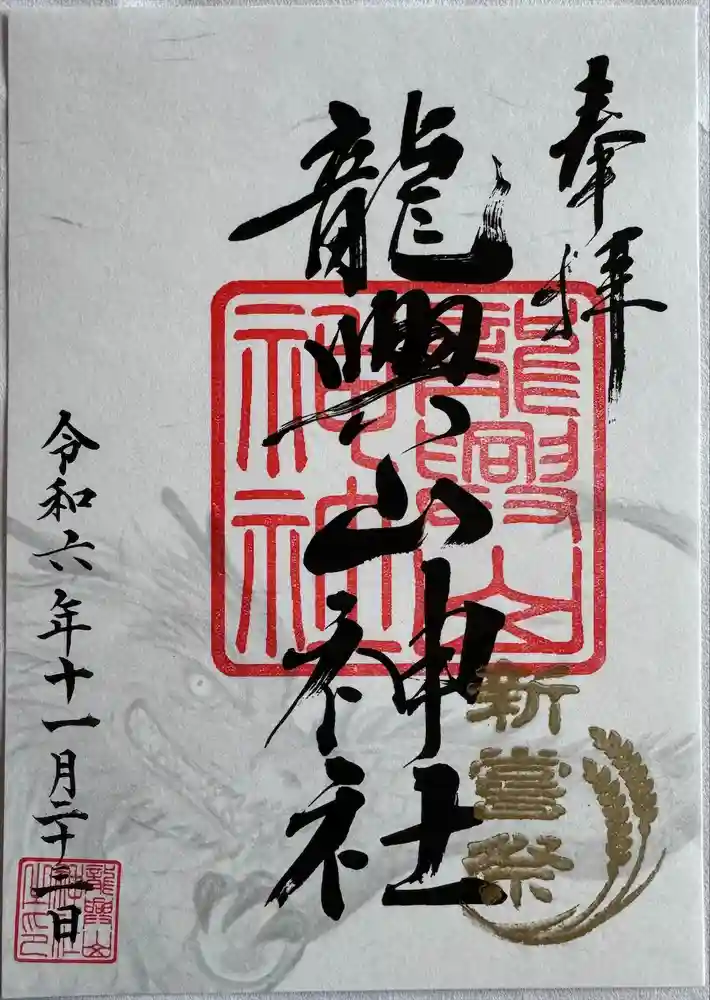 奉拝
龍興山神社
龍興山
神社
新嘗祭
令和六年十一月二十三日
龍興山
神社
之印